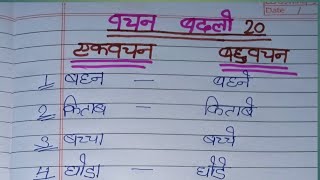 Date /
वचन बदलो 20
एकवचन बहुवचन
1 बहन — बहने
2 किताब — किताबे
3 बच्चा — बच्चे
4 घोडा — घोडे